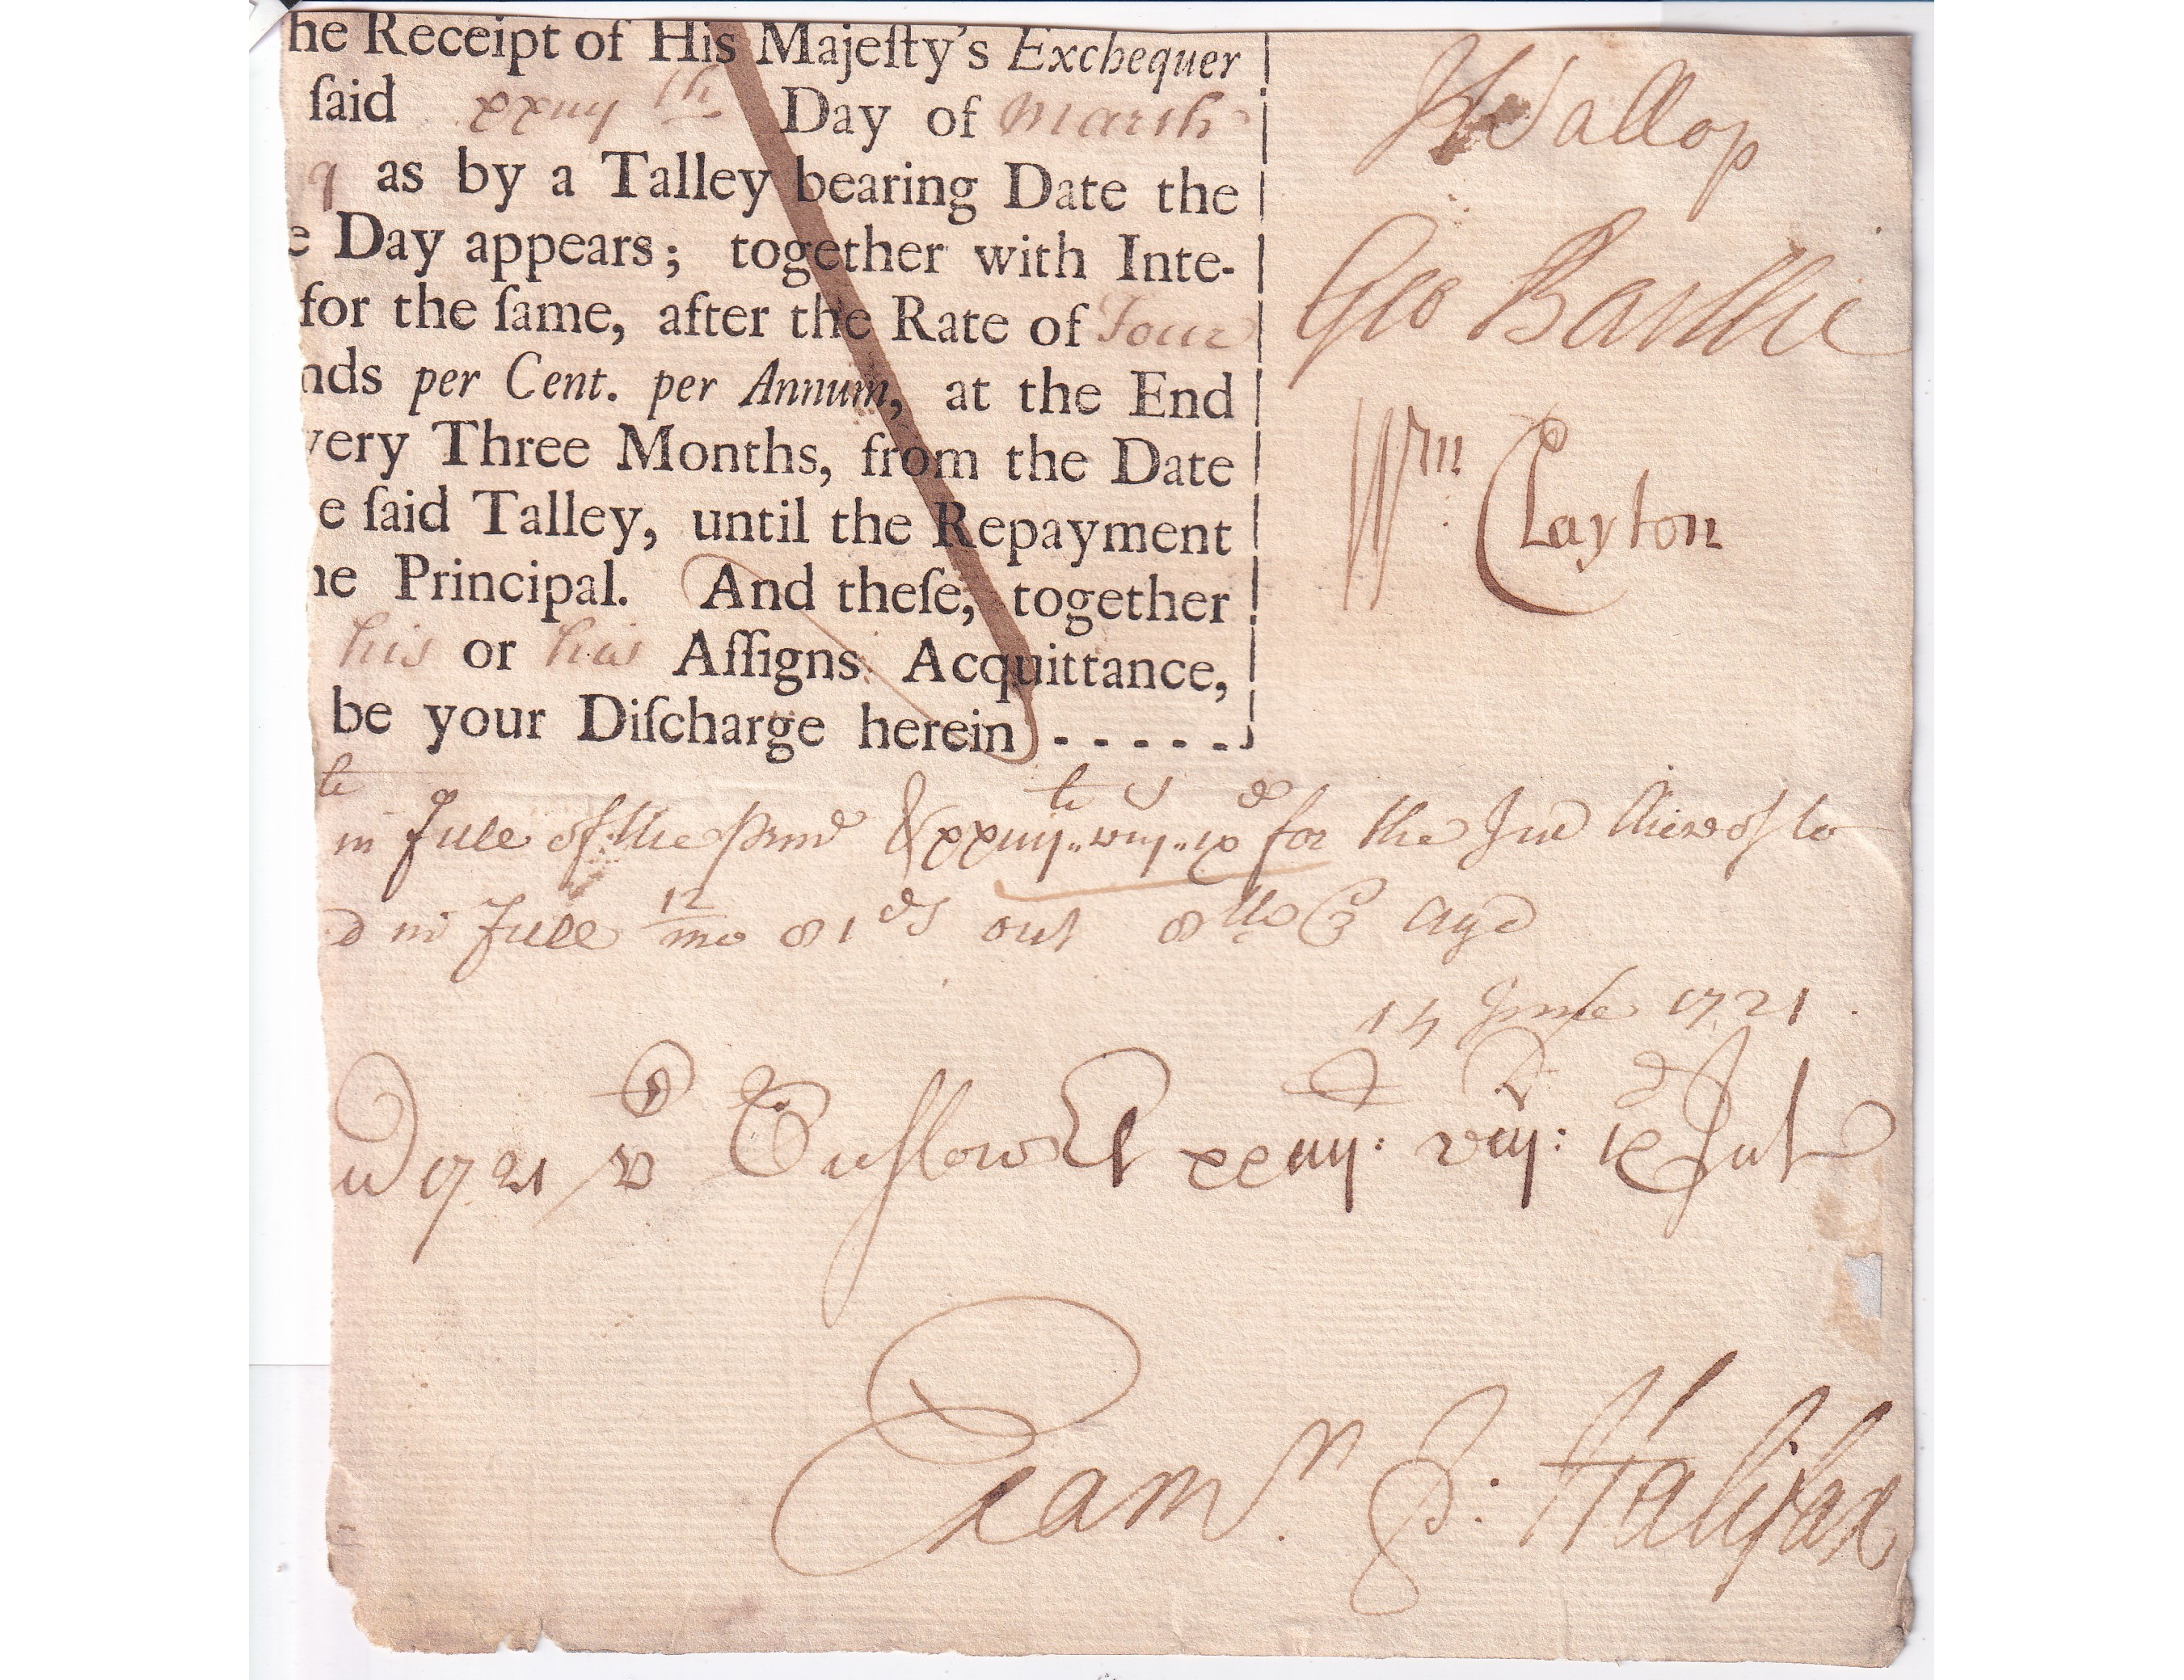 he Receipt of His Majeſty's Exchequer
ſaid xxiiij th Day of March
as by a Talley bearing Date the
e Day appears; together with Inte-
for the ſame, after the Rate of Four
nds per Cent. per Annum, at the End
very Three Months, from the Date
e ſaid Talley, until the Repayment
he Principal. And theſe, together
his or his Aſſigns Acquittance,
be your Diſcharge herein - - - - -
J Wallop
Geo Baillie
Wm Clayton
in full of the xxiiij..viij..ix for the Int thereof to
d in full 12 mo 81 ds out
14 June 1721
1721 Onslow xxiiij: viij: ix
Exam.n P: Halifax